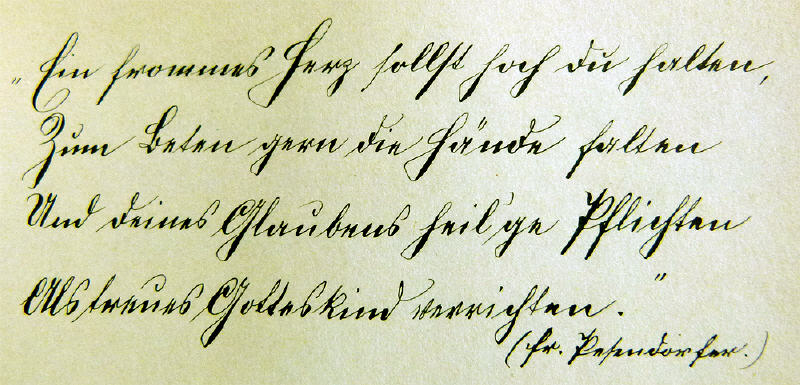 „Ein frommes Herz sollst hoch du halten,
Zum Beten gern die Hände falten
Und deines Glaubens heil'ge Pflichten
Als treues Gotteskind verrichten."
(Fr. Pesendorfer.)